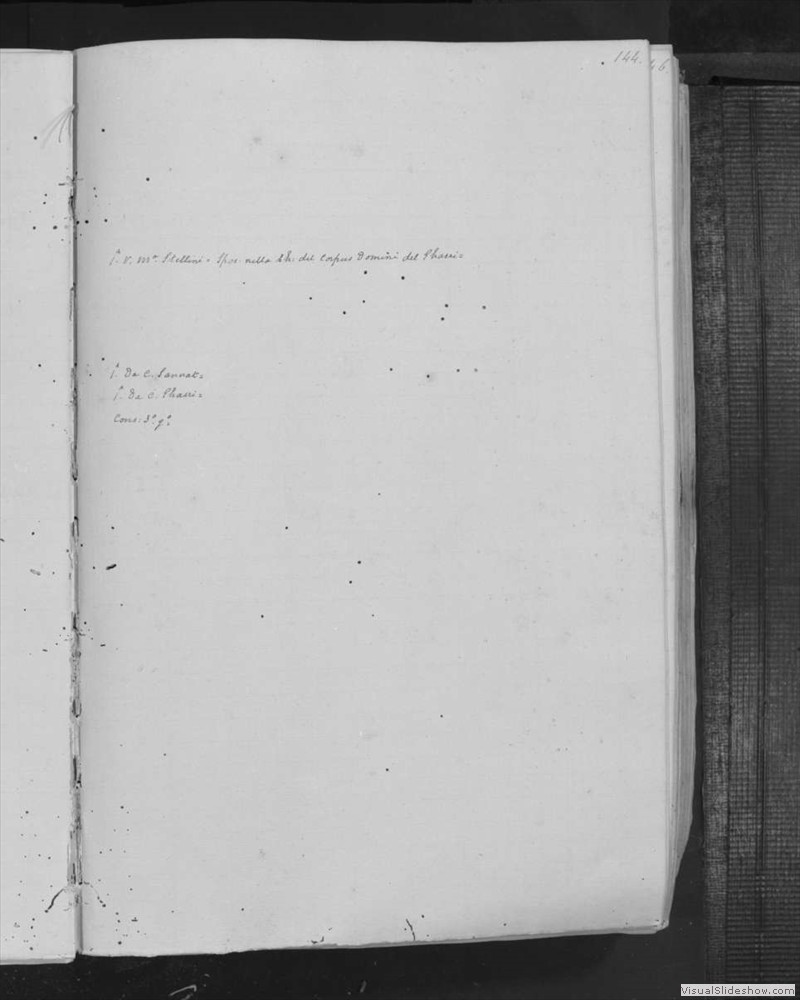 144. 46.
V. Mª. Stellini = Spos. nella Ch. del Corpus Domini del Ghasri =
Da C. Sannat =
Da C. Ghasri =
Cons: 3º. gº.
VisualSlideshow.com